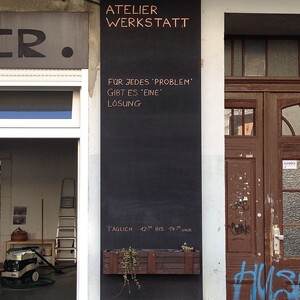 ATELIER
WERKSTATT
ER.
FÜR JEDES "PROBLEM"
GIBT ES "EINE"
LÖSUNG
TÄGLICH 12 BIS UHR